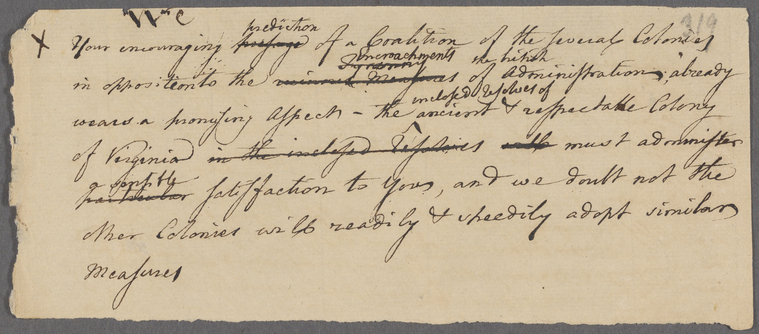 X Your encouraging presage prediction of a Coalition of the several Colonies
in opposition to the Measures encroachments of the british Administration, already
wears a promising Aspect - the inclosed Resolves of ancient & respectable Colony
of Virginia in the inclosed Resolves will must administer
particular a sensible satisfaction to you, and we doubt not the
other Colonies will readily & speedily adopt similar
Measures